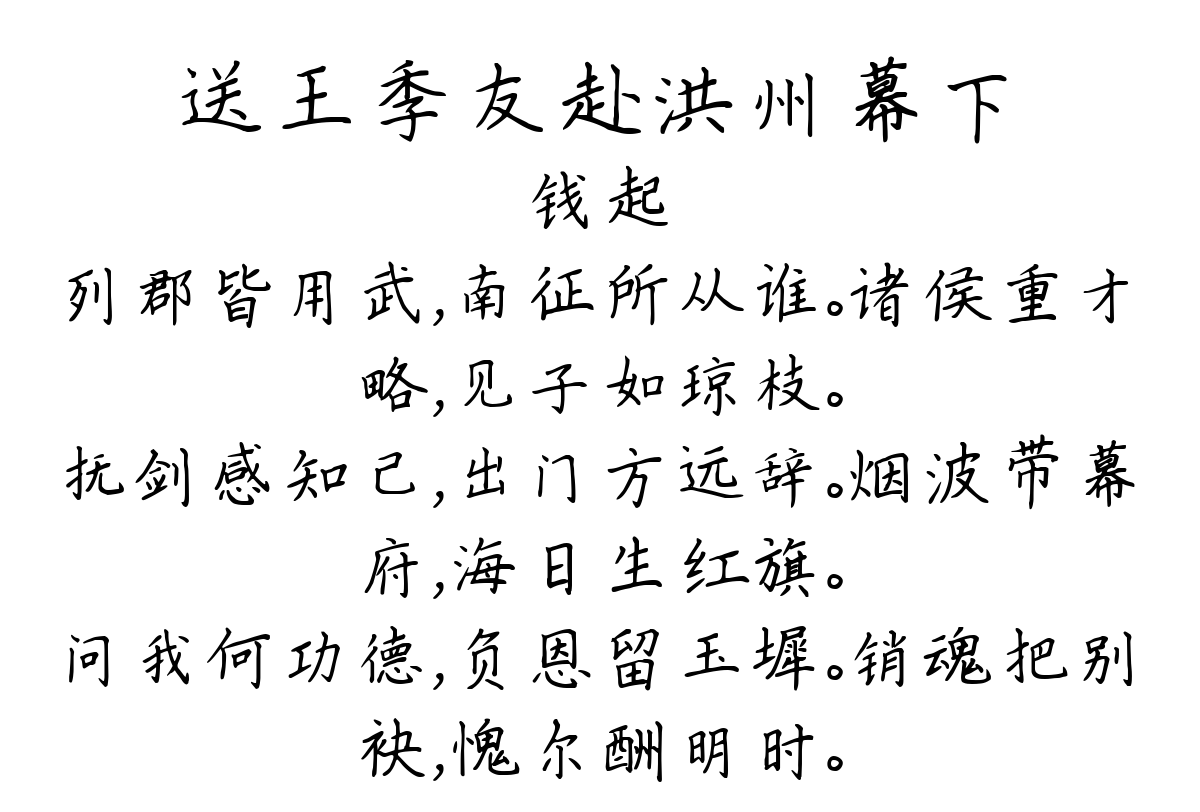 送王季友赴洪州幕下
钱起
列郡皆用武,南征所从谁。诸侯重才
略,见子如琼枝。
抚剑感知己,出门方远辞。烟波带幕
府,海日生红旗。
问我何功德,负恩留玉墀。销魂把别
袂,愧尔酬明时。